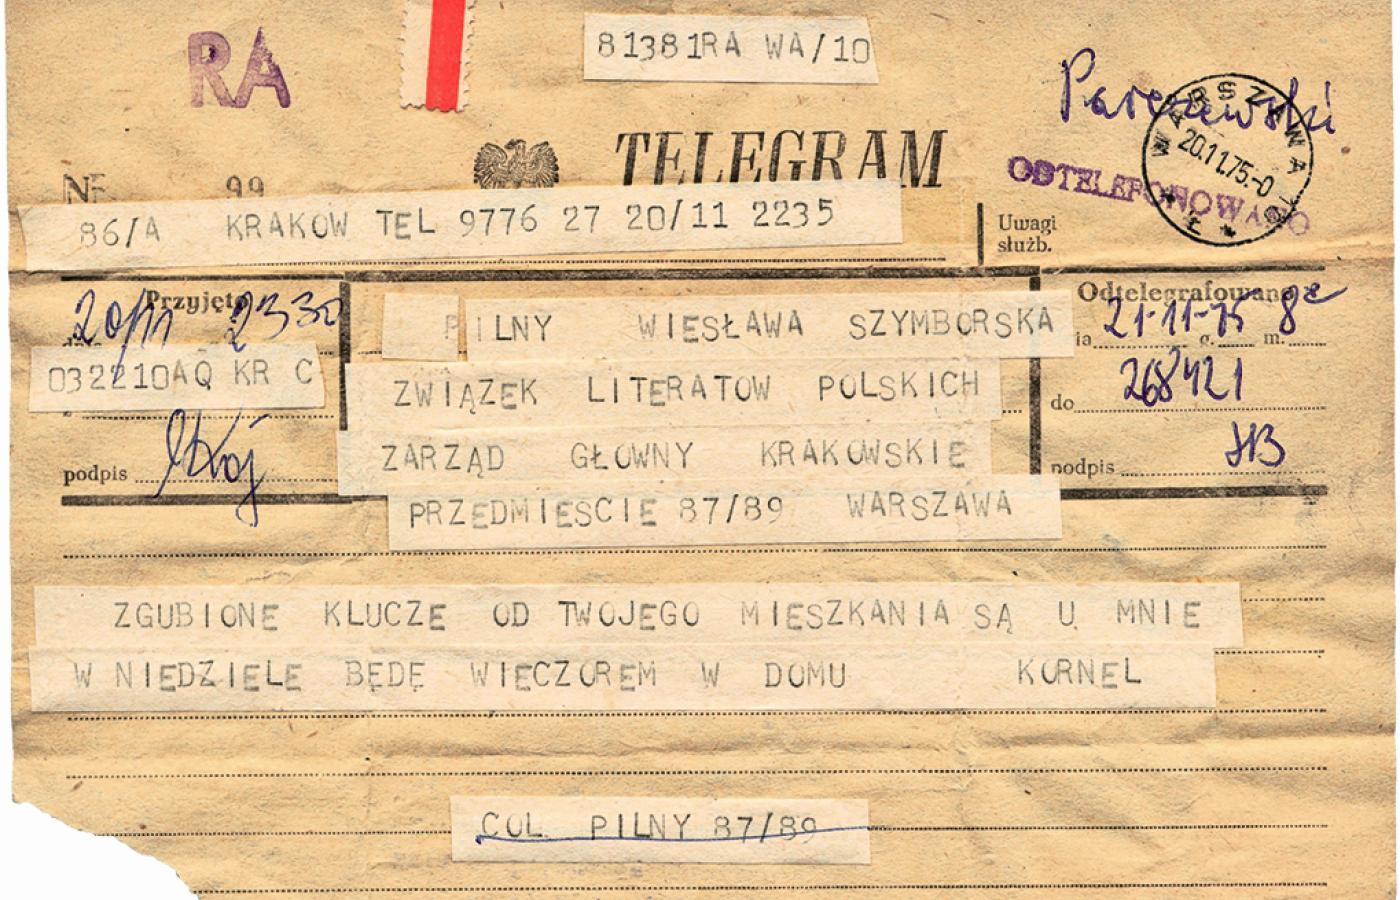 RA
81381RA WA/10
TELEGRAM
WARSZAWA
20.11.75.-0
ODTELEFONOWANO
Nr 99
86/A KRAKOW TEL 9776 27 20/11 2235
Uwagi
służb.
Przyjęto
20/11 2330
Odtelegrafowano
21-11-75 8
g. m.
PILNY WIESŁAWA SZYMBORSKA
032210AQ KR C
ZWIĄZEK LITERATOW POLSKICH
do 268421
ZARZĄD GŁOWNY KRAKOWSKIE
podpis
podpis HB
PRZEDMIESCIE 87/89 WARSZAWA
ZGUBIONE KLUCZE OD TWOJEGO MIESZKANIA SĄ U MNIE
W NIEDZIELE BĘDĘ WIECZOREM W DOMU KORNEL
COL PILNY 87/89